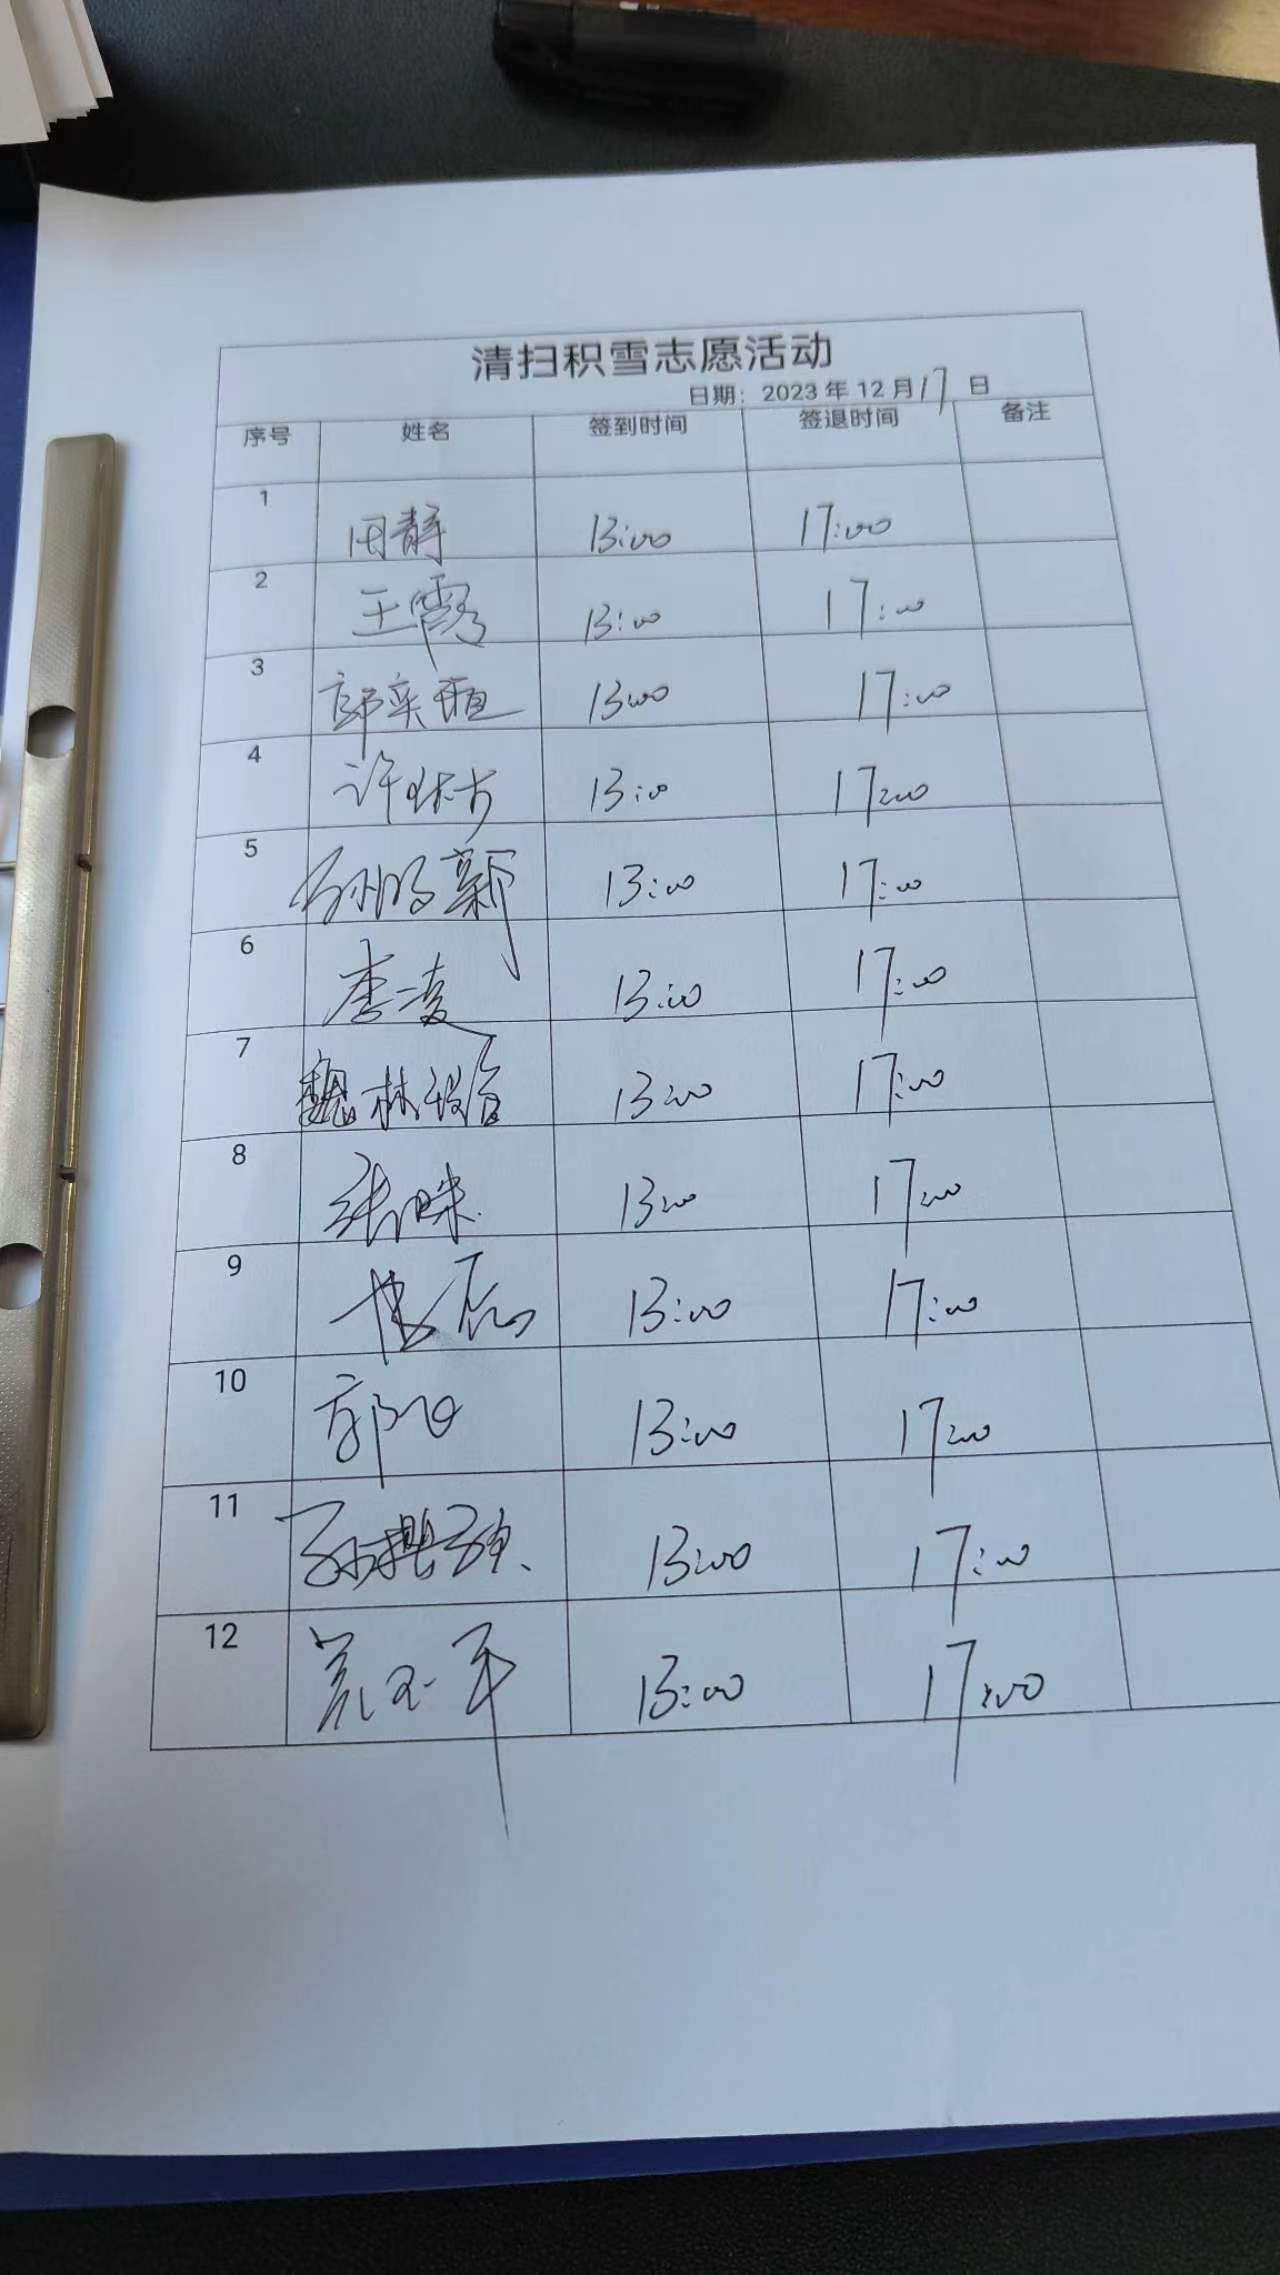 清扫积雪志愿活动
日期：2023年12月17日
序号 姓名 签到时间 签退时间 备注
1 田静 13:00 17:00
2 王霞 13:00 17:00
3 13:00 17:00
4 许 13:00 17:00
5 孙鸿新 13:00 17:00
6 李凌 13:00 17:00
7 魏林 13:00 17:00
8 张 13:00 17:00
9 13:00 17:00
10 郭 13:00 17:00
11 孙 13:00 17:00
12 13:00 17:00